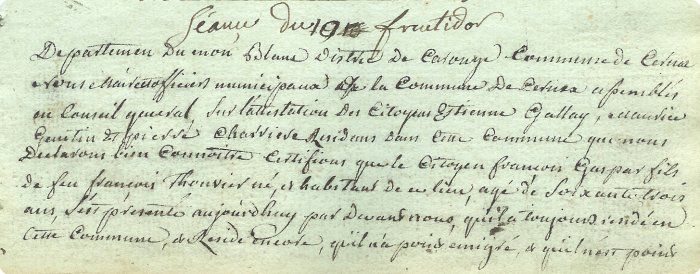 Séance du 19e fructidor
Departemen Du mon Blanc District De Carouge Commune de Cernex
Nous maire et officiers municipaux de la Commune De Cernex assemblés
en Conseil general, Sur lattestation Des Citoyens Estienne Gallay, maurice
Genitin et pierre Charriere Residans dans Cette Commune que nous
Declarons bien Connoitre Certifions que le Citoyen francois Gaspar fils
de feu francois thouvier né, et habitant de ce lieu, agé de Soixante trois
ans, sest presenté aujourdhuy par Devant nous, quil a toujours residé en
Cette Commune, & Reside encore, quil na point emigré, & quil nest point